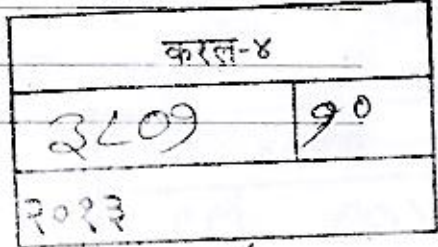 करल-४
३८०१ १०
२०१३